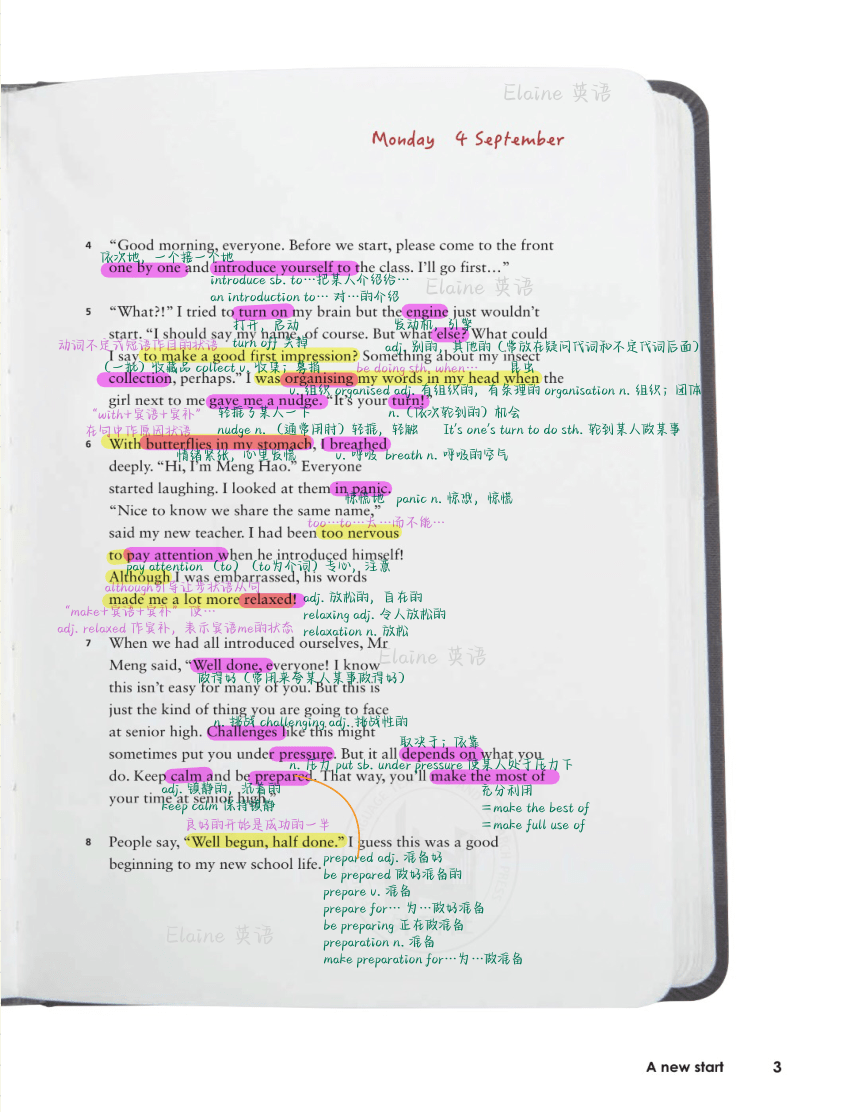 Elaine 英语
Monday 4 September
4 “Good morning, everyone. Before we start, please come to the front
依次地，一个接一个地
one by one and introduce yourself to the class. I’ll go first…”
introduce sb. to…把某人介绍给…
Elaine 英语
an introduction to… 对…的介绍
5 “What?!” I tried to turn on my brain but the engine just wouldn’t
打开，启动 发动机，引擎
start. “I should say my name, of course. But what else? What could
动词不定式短语作目的状语 turn off 关掉 adj. 别的，其他的（常放在疑问代词和不定代词后面）
I say to make a good first impression? Something about my insect
（一批）收藏品 collect v. 收集；募捐 be doing sth. when… 昆虫
collection, perhaps.” I was organising my words in my head when the
v. 组织 organised adj. 有组织的，有条理的 organisation n. 组织；团体
girl next to me gave me a nudge. “It’s your turn!”
“with+宾语+宾补” 轻推了某人一下 n.（依次轮到的）机会
在句中作原因状语 nudge n.（通常用肘）轻推，轻触 It's one's turn to do sth. 轮到某人做某事
6 With butterflies in my stomach, I breathed
情绪紧张，心里发慌 v. 呼吸 breath n. 呼吸的空气
deeply. “Hi, I’m Meng Hao.” Everyone
started laughing. I looked at them in panic.
惊慌地 panic n. 惊恐，惊慌
“Nice to know we share the same name,”
too…to…太…而不能…
said my new teacher. I had been too nervous
to pay attention when he introduced himself!
pay attention（to）（to为介词）专心，注意
Although I was embarrassed, his words
although引导让步状语从句
made me a lot more relaxed!
adj. 放松的，自在的
“make+宾语+宾补” 使…
relaxing adj. 令人放松的
adj. relaxed 作宾补，表示宾语me的状态
relaxation n. 放松
7 When we had all introduced ourselves, Mr
Meng said, “Well done, everyone! I know
Elaine 英语
做得好（常用来夸某人某事做得好）
this isn’t easy for many of you. But this is
just the kind of thing you are going to face
n. 挑战 challenging adj. 挑战性的
at senior high. Challenges like this might
取决于；依靠
sometimes put you under pressure. But it all depends on what you
n. 压力 put sb. under pressure 使某人处于压力下
do. Keep calm and be prepared. That way, you’ll make the most of
adj. 镇静的，沉着的 充分利用
your time at senior high.”
keep calm 保持镇静 =make the best of
良好的开始是成功的一半 =make full use of
8 People say, “Well begun, half done.” I guess this was a good
beginning to my new school life.
prepared adj. 准备好
be prepared 做好准备的
prepare v. 准备
prepare for… 为…做好准备
be preparing 正在做准备
Elaine 英语
preparation n. 准备
make preparation for…为…做准备
A new start 3